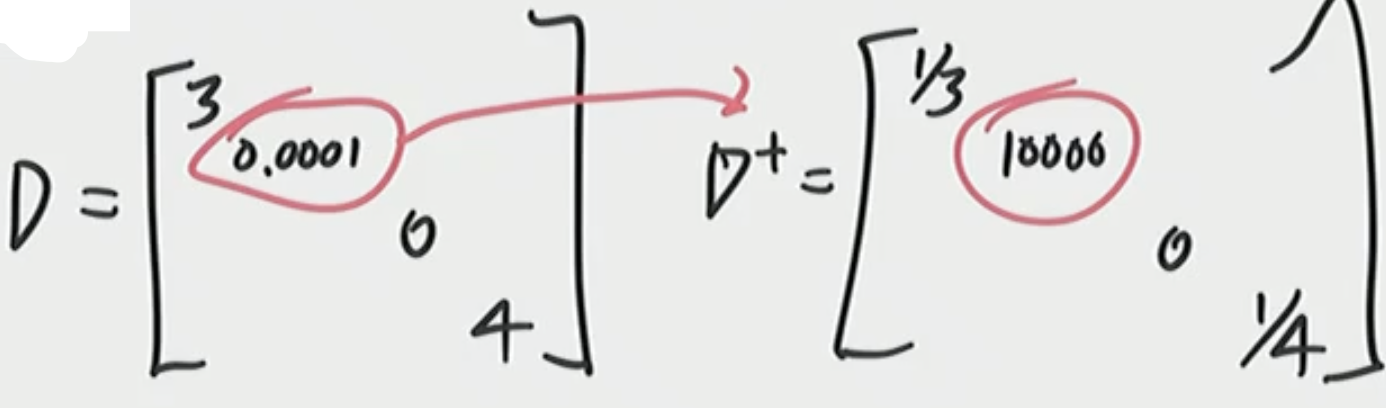 D = [ 3
0.0001
0
4 ]
D⁺ = [ 1/3
10000
0
1/4 ]